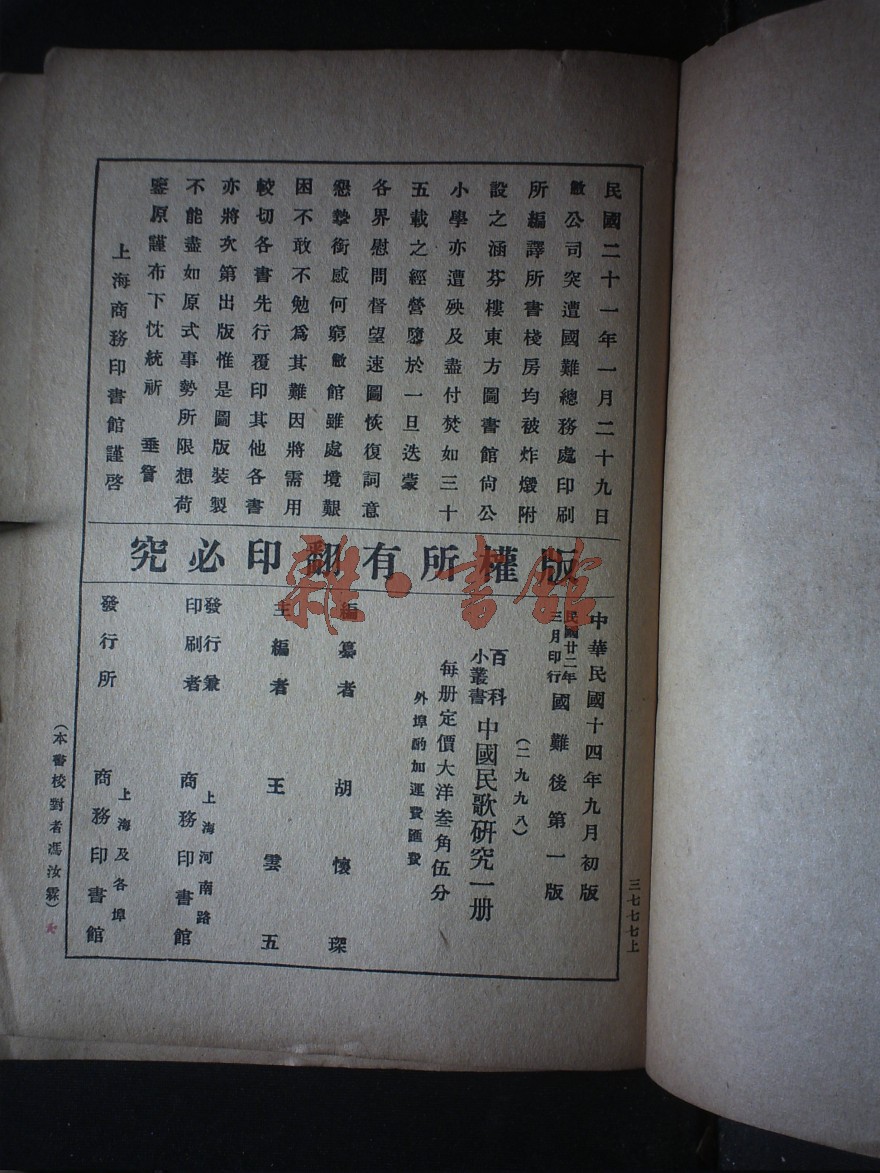 民國二十一年一月二十九日
敝公司突遭國難總務處印刷
所編譯所書棧房均被炸燬附
設之涵芬樓東方圖書館尙公
小學亦遭殃及盡付焚如三十
五載之經營隳於一旦迭蒙
各界慰問督望速圖恢復詞意
懇摯銜感何窮敝館雖處境艱
困不敢不勉爲其難因將需用
較切各書先行覆印其他各書
亦將次第出版惟是圖版裝製
不能盡如原式事勢所限想荷
鑒原謹布下忱統祈 垂詧
上海商務印書館謹啓
版權所有翻印必究
中華民國十四年九月初版
民國廿二年三月印行國難後第一版
(二九九八)
百科小叢書中國民歌研究一册
每册定價大洋叁角伍分
外埠酌加運費匯費
編纂者 胡懷琛
主編者 王雲五
發行兼印刷者 上海河南路商務印書館
發行所 上海及各埠商務印書館
(本書校對者馮汝霖)
三七七七上
雜·書館